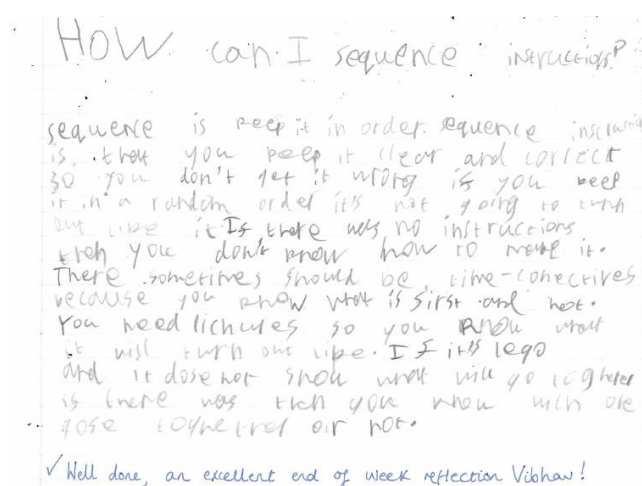 HOW can I sequence instructions?
sequence is keep it in order. sequence
is. that you keep it clear and correct
so you don't get it wrong is you keep
it in a random order it's not going to turn
out like it If there was no instructions
then you don't know how to make it.
There sometimes should be time-conectives
because you know what is first and not.
You need so you know what
it will turn out like. If it's lego
and it dose not show what will go together
is there was then you know wich one
gose or not.
✓ Well done, an excellent end of week reflection Vibhav!